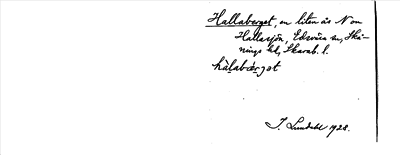 Hallaberget, en liten ås N om
Hallasjön, Edsvära sn, Skå-
nings hd, Skarab. l.
hàlabærgat
J. Lundahl 1928.